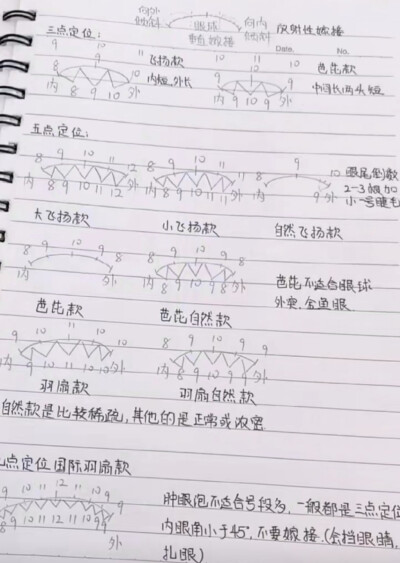 向外 倾斜 眼球 垂直嫁接 向内 倾斜 反射性嫁接
Date. No.
三点定位:
9 10 飞扬款 10 11 10 芭花款
8 内短,外长 中间长两头短
内 8 9 10 外 内 9 10 9 外
五点定位:
8 9 10 11 12 8 9 10 11 11 8 9 10 眼尾倒数
2-3嫁加
内 8 9 10 11 12 外 内 8 9 10 11 11 外 内 9 外 小一号睫毛
大飞扬款 小飞扬款 自然飞扬款
8 9 10 9 8 8 9 10 9 8
内 外 内 8 9 10 9 8 外 芭花不适合眼球
外突,金鱼眼
芭花款 芭花自然款
9 10 11 10 10 8 9 10 9 9
内 9 10 11 10 10 外 内 8 9 10 9 9 外
羽扇款 羽扇自然款
自然款是比较稀疏,其他的是正常或浓密
点定位 国际羽扇款
9 10 11 12 11 10 9 肿眼泡不适合号段多,一般都是三点定位
9 10 11 12 11 10 9 外 内眼角小于45°,不要嫁接.(会挡眼睛,
扎眼)